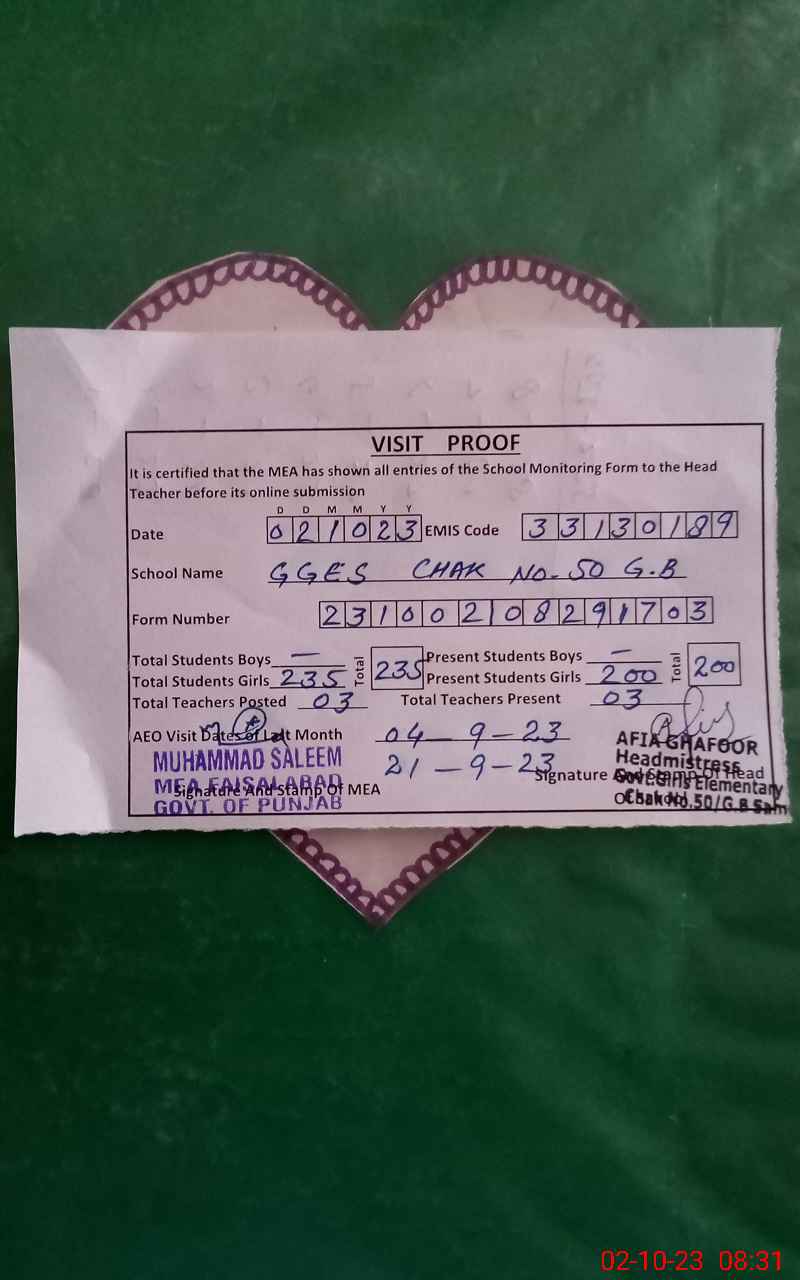 VISIT PROOF
It is certified that the MEA has shown all entries of the School Monitoring Form to the Head
Teacher before its online submission
D D M M Y Y
Date 021023 EMIS Code 33130189
School Name GGES CHAK NO-50 G.B
Form Number 231002108291703
Total Students Boys — Total 235 Present Students Boys — Total 200
Total Students Girls 235 Present Students Girls 200
Total Teachers Posted 03 Total Teachers Present 03
AEO Visit Dates of Last Month 04-9-23
21-9-23
MUHAMMAD SALEEM
MEA FAISALABAD
GOVT. OF PUNJAB
Signature And Stamp Of MEA
AFIA GHAFOOR
Headmistress
Govt.Girls Elementary
Chak No.50/G.B Sam
Signature And Stamp Of Head
02-10-23 08:31